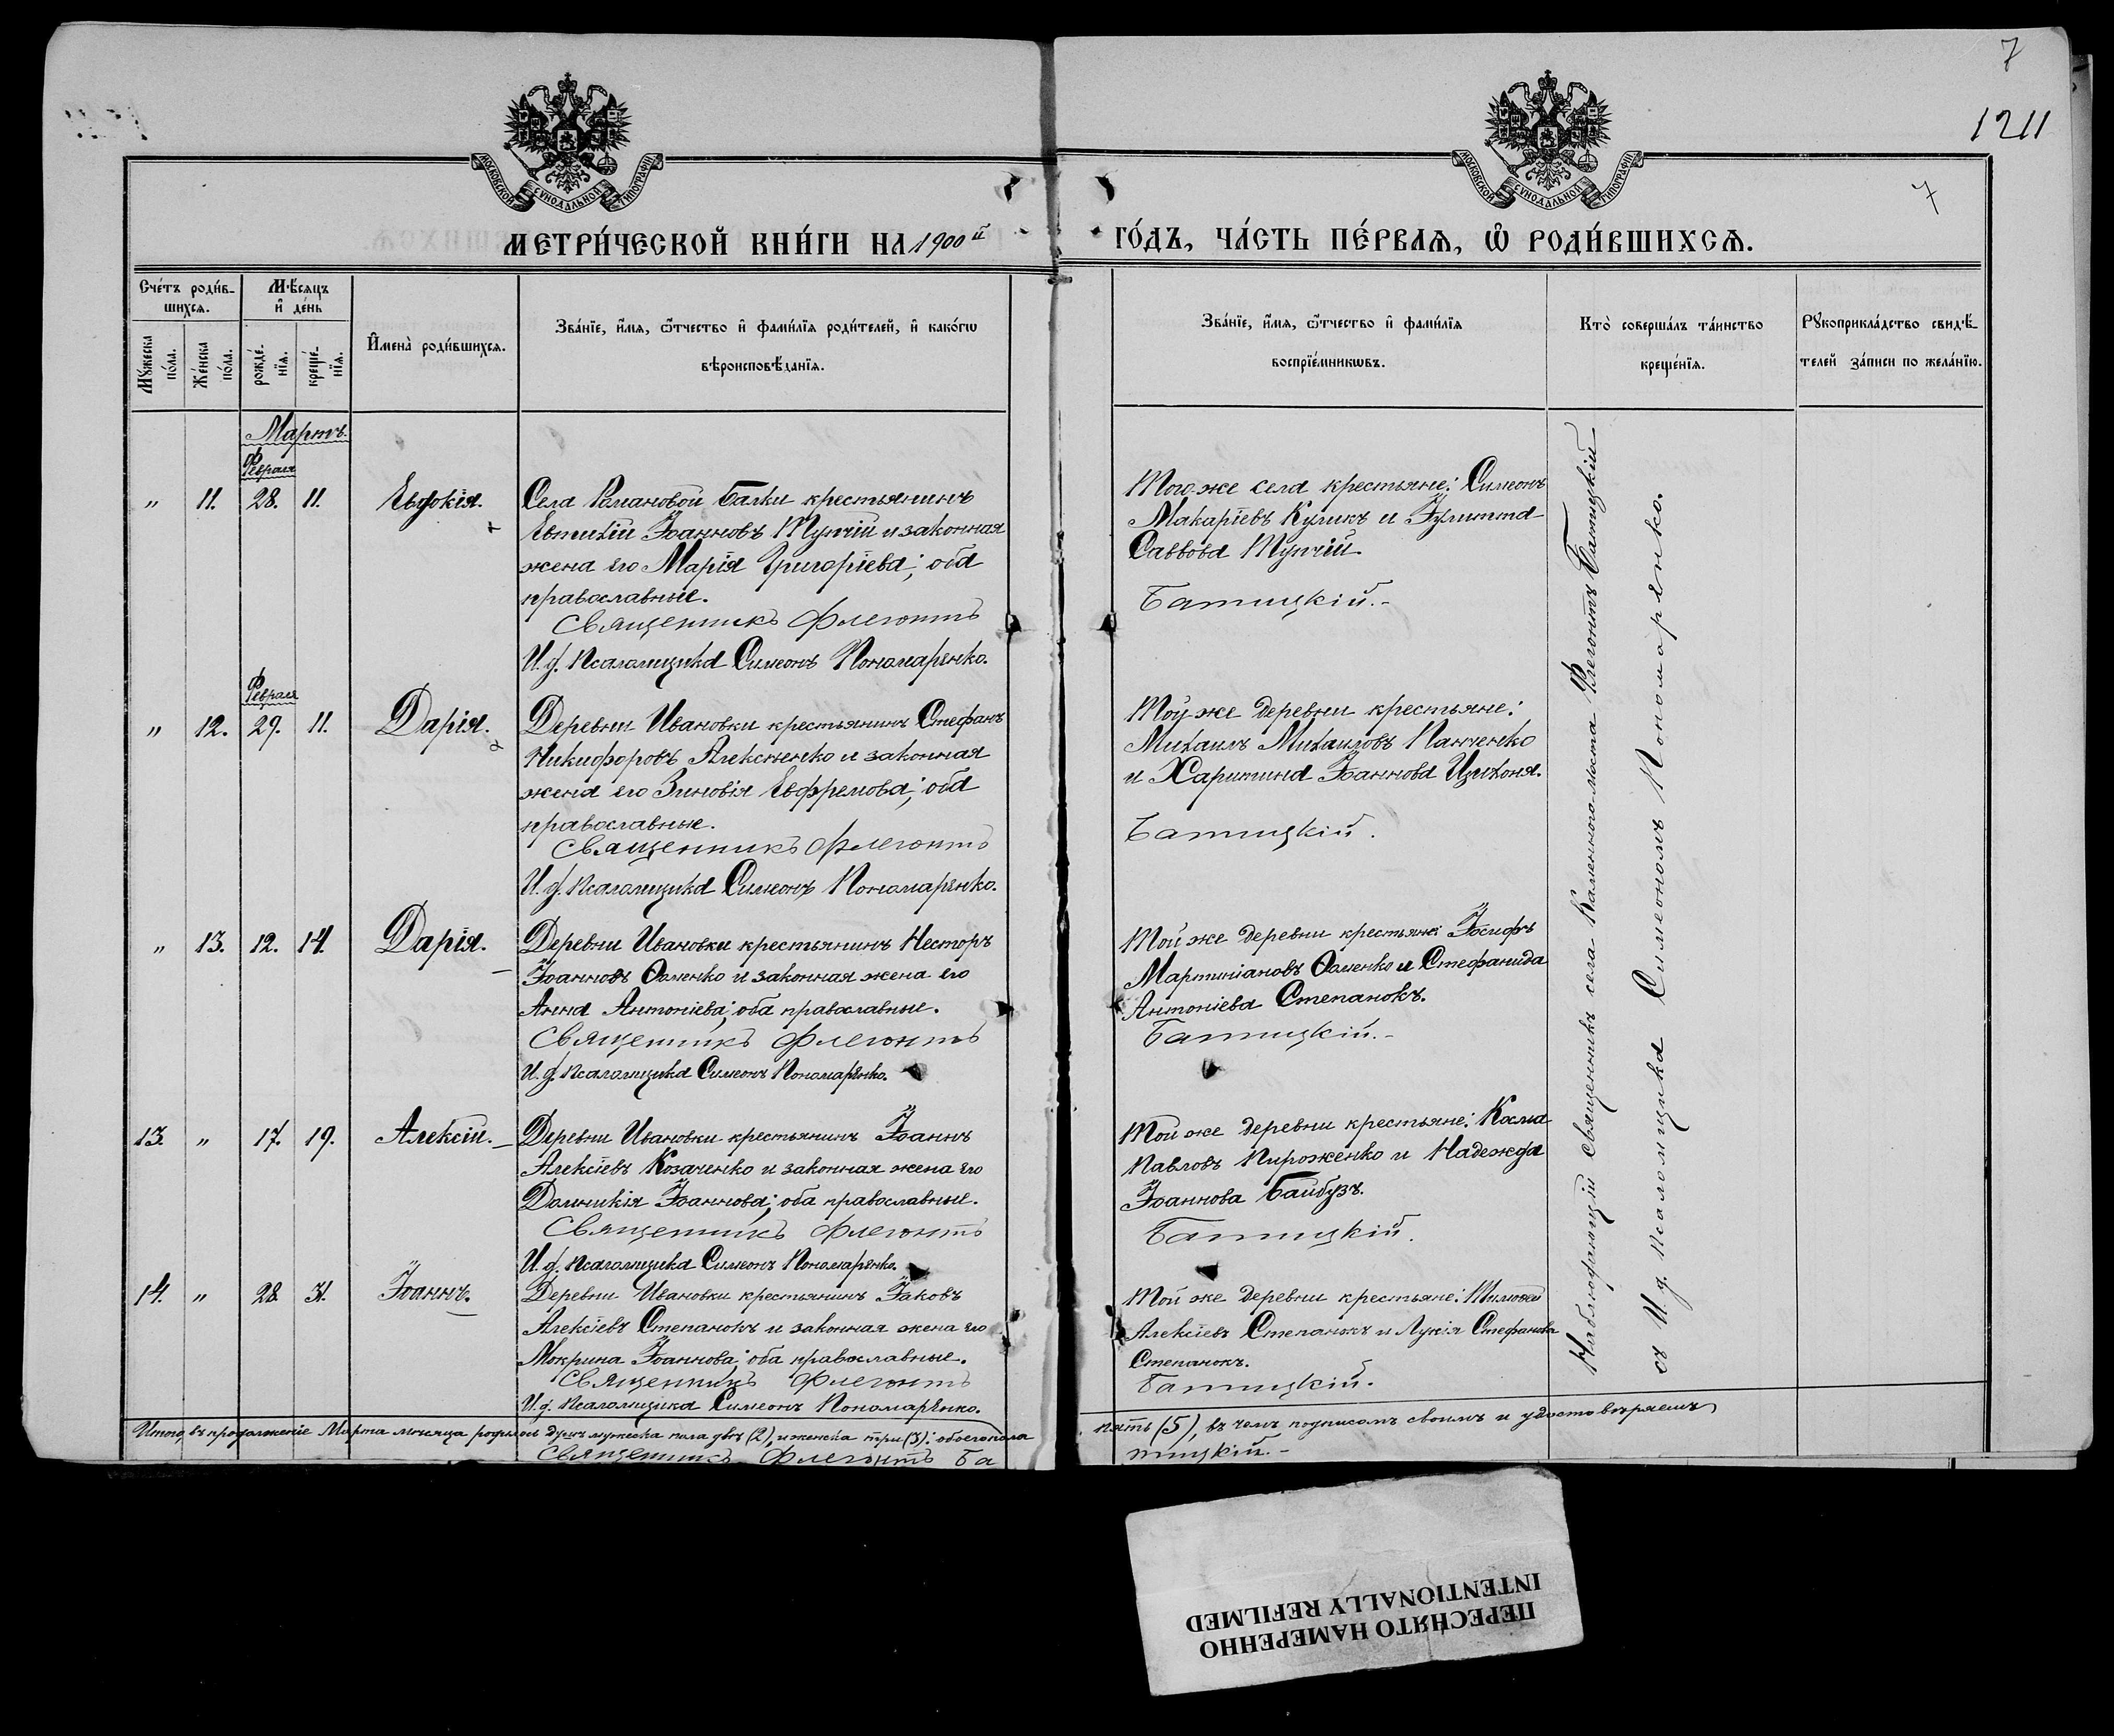 7
1211
7
МОСКОВСКОЙ СУНОДАЛЬНОЙ ТИПОГРАФІИ
МОСКОВСКОЙ СУНОДАЛЬНОЙ ТИПОГРАФІИ
МЕТРИ́ЧЕСКОЙ КНИ́ГИ НА 1900й
ГО́ДЪ, ЧА́СТЬ ПЕ́РВАѦ, Ѽ РОДИ́ВШИХСѦ.
Сче́тъ роди́в-
шихсѧ.
Мѣ́сѧцъ
и҆ де́нь
Мꙋ́жеска
по́ла.
Же́нска
по́ла.
рожде́-
нїѧ.
креще́-
нїѧ.
И҆мена̀ роди́вшихсѧ.
Зва́нїе, и҆́мѧ, ѻ҆́тчество и҆ фами́лїѧ роди́телей, и҆ како́гѡ
вѣроисповѣ́данїѧ.
Зва́нїе, и҆́мѧ, ѻ҆́тчество и҆ фами́лїѧ
воспрїе́мникѡвъ.
Кто̀ соверша́лъ та́инство
креще́нїѧ.
Рꙋкоприкла́дство свидѣ́-
телей за́писи по жела́нїю.
Мартъ.
Февраля
" 11. 28. 11. Евдокія.
Села Романовой Балки крестьянинъ
Евтихій Іоанновъ Тупчій и законная
жена его Марія Григоріева; оба
православные.
Священникъ Флегонтъ
И. д. псаломщика Симеонъ Пономаренко.
Того-же села крестьяне: Симеонъ
Макаріевъ Куликъ и Іулитта
Саввова Тупчій.
Батицкій.-
Февраля
" 12. 29. 11. Дарія.
Деревни Ивановки крестьянинъ Стефанъ
Никифоровъ Алексѣенко и законная
жена его Зиновія Евфремова; оба
православные.
Священникъ Флегонтъ
И. д. псаломщика Симеонъ Пономаренко.
Той же деревни крестьяне:
Михаилъ Михаиловъ Панченко
и Харитина Іоаннова Цихоня.
Батицкій.
" 13. 12. 14. Дарія.
Деревни Ивановки крестьянинъ Несторъ
Іоанновъ Фоменко и законная жена его
Анна Антоніева; оба православные.
Священникъ Флегонтъ
И. д. псаломщика Симеонъ Пономаренко.
Той же деревни крестьяне Іосифъ
Мартиніановъ Фоменко и Стефанида
Антоніева Степанокъ.
Батицкій.-
13. " 17. 19. Алексій.
Деревни Ивановки крестьянинъ Іоаннъ
Алексіевъ Козаченко и законная жена его
Домникія Іоаннова; оба православные.
Священникъ Флегонтъ
И. д. псаломщика Симеонъ Пономаренко.
Той же деревни крестьяне: Косма
Павловъ Пироженко и Надежда
Іоаннова Байбузъ.
Батицкій.
14. " 28. 31. Іоаннъ.
Деревни Ивановки крестьянинъ Іаковъ
Алексіевъ Степанокъ и законная жена его
Мокрина Іоаннова; оба православные.
Священникъ Флегонтъ
И. д. псаломщика Симеонъ Пономаренко.
Той же деревни крестьяне: Тимофей
Алексіевъ Степанокъ и Лукія Стефанова
Степанокъ.
Батицкій.
Наблюдающій священникъ села Каменного-моста Флегонтъ Батицкій
съ И. д. псаломщика Симеономъ Пономаренко.
Итого, въ продолженіе Марта мѣсяца родилось душъ мужеска пола двѣ (2), и женска три (3); обоего пола
пять (5), въ чемъ подписомъ своимъ и удостовѣряемъ
Священникъ Флегонтъ Ба
тицкій.-
ПЕРЕСНЯТО НАМЕРЕННО
INTENTIONALLY REFILMED